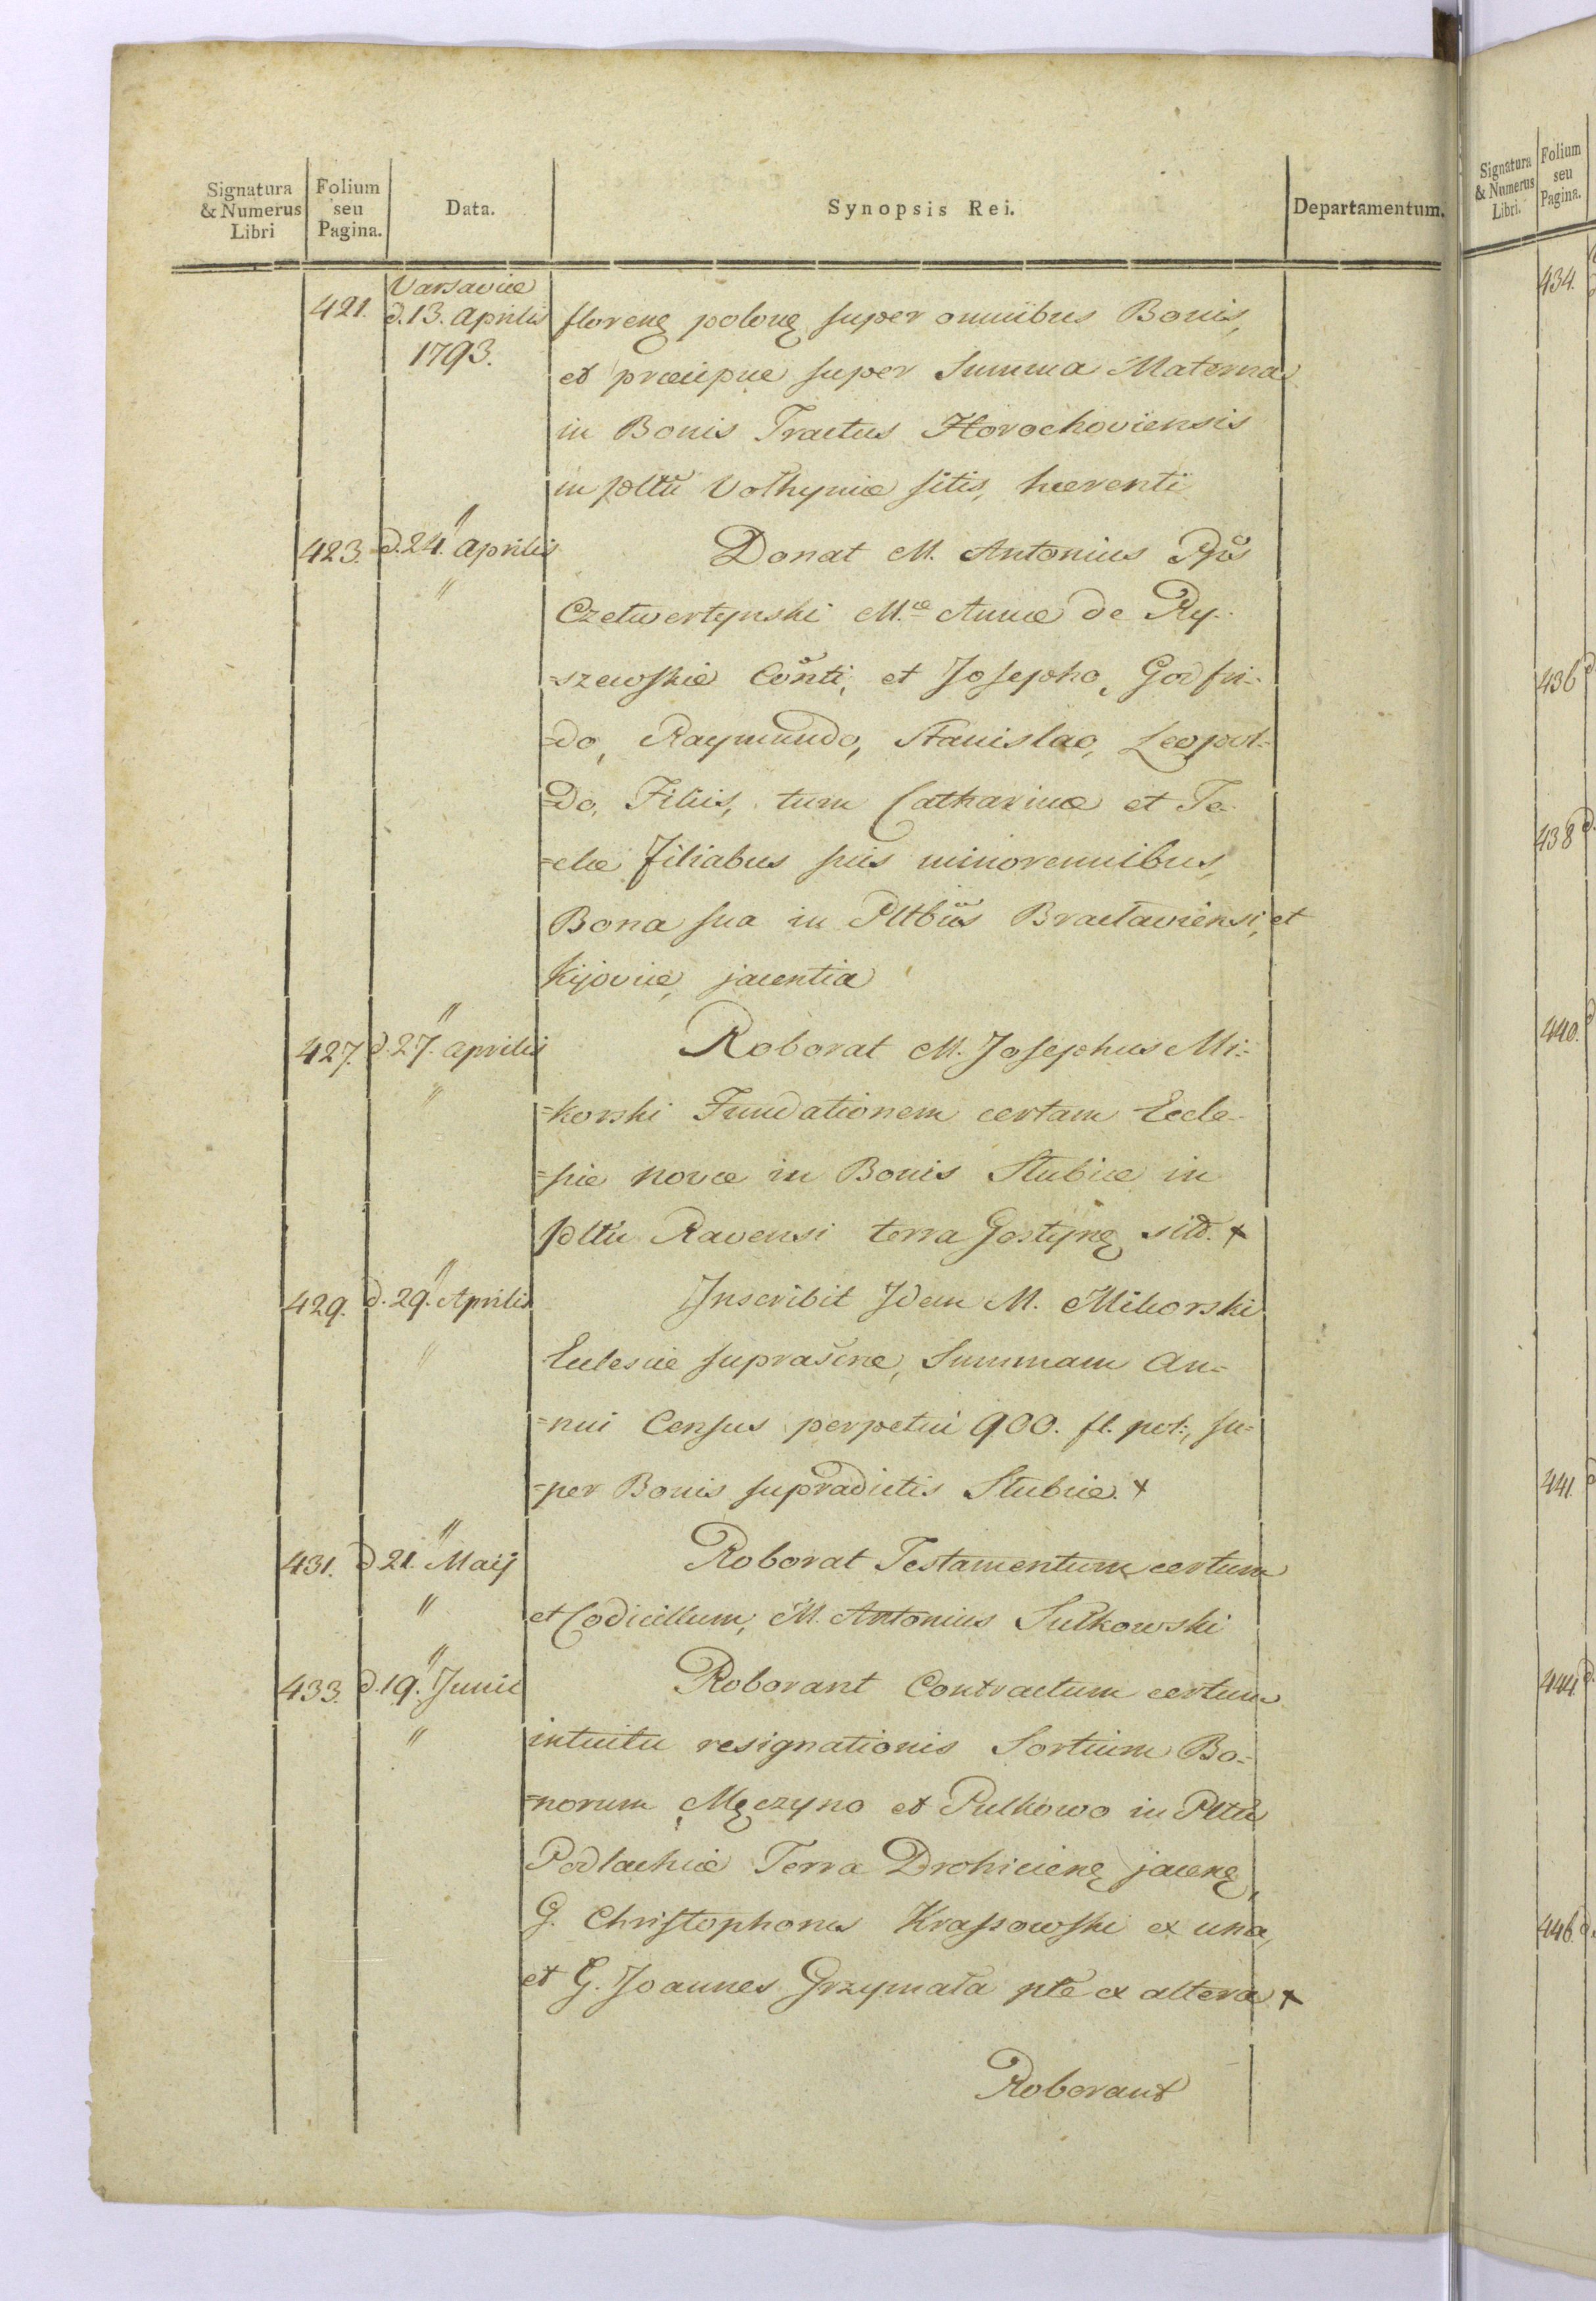 Signatura & Numerus Libri | Folium seu Pagina. | Data. | Synopsis Rei. | Departamentum.
421. | Varsaviæ d. 13. Aprilis 1793. | florenę polonę super omnibus Bonis,
et præcipue super Summa Materna
in Bonis Tractus Horochoviensis
in pltũ Volhyniæ sitis, hærenti
423. | " d. 24. Aprilis " | Donat M. Antonius Pps
Czetwertynski M.æ Annæ de Ry-
=szewskie Cõnti, et Josepho, Godfri-
=do, Raymundo, Stanislao, Leopol=
=do, Filiis, tum Catharinæ et Te-
=clæ Filiabus suis minorennibus,
Bona sua in Pltbũs Braclaviensi, et
Kijoviæ, jacentia
427. | " d. 27. Aprilis " | Roborat M. Josephus Mi=
=korski Fundationem certam Eccle-
=siæ novæ in Bonis Slubice in
pltũ Ravensi terra Gostynę sitõ. +
429. | " d. 29. Aprilis " | Inscribit Idem M. Mikorski
Eclesiæ supraścne, Summam An=
=nui Census perpetui 900. fl. pol:, su=
=per Bonis supradictis Slubice. +
431. | " d. 21. Maij " | Roborat Testamentum certum
et Codicillum, M. Antonius Sulkowski
433. | " d. 19. Junii " | Roborant Contractum certum
intuitu resignationis Sortium Bo=
=norum Męczyno et Pulkowo in Pltũ
Podlachiæ Terra Drohicienę jacenę,
G. Christophorus Krassowski ex una,
et G. Joannes Grzymała pte ex altera +
Roborant
Signatura & Numerus Libri. | Folium seu Pagina.
434.
436
438
440.
441.
444.
446.